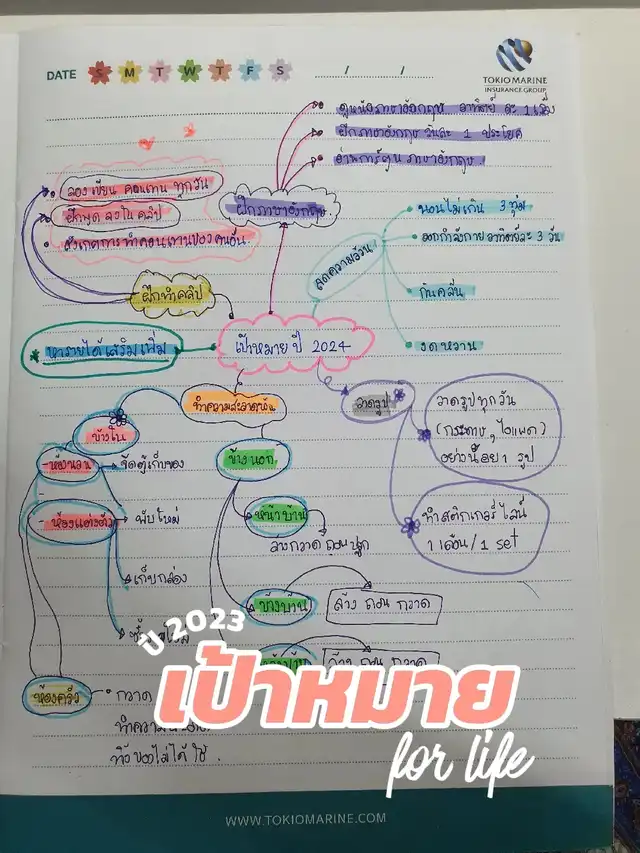 DATE S M T W T F S / /
TOKIO MARINE
INSURANCE GROUP
ดูหนังภาษาอังกฤษ อาทิตย์ ละ 1 เรื่อง
ฝึกภาษาอังกฤษ วันละ 1 ประโยค
อ่านการ์ตูน ภาษาอังกฤษ
ฝึกภาษาอังกฤษ
ลองเขียน คอนเทน ทุกวัน
ฝึกพูด ลงในคลิป
สังเกตการทำคอนเทนของคนอื่น
ฝึกทำคลิป
ลดความอ้วน
นอนไม่เกิน 3 ทุ่ม
ออกกำลังกาย อาทิตย์ละ 3 วัน
กินคลีน
งดหวาน
หารายได้เสริมเพิ่ม
เป้าหมาย ปี 2024
ทำความสะอาดบ้าน
วาดรูป
วาดรูปทุกวัน
(กระดาษ, ไอแพด)
อย่างน้อย 1 รูป
ทำสติกเกอร์ไลน์
1 เดือน / 1 set
ข้างใน
- ห้องนอน
จัดตู้เก็บของ
- ห้องแต่งตัว
พับใหม่
เก็บกล่อง
ข้างนอก
หน้าบ้าน
ล้าง กวาด ถอน ปลูก
ข้างบ้าน
ล้าง ถอน กวาด
ล้าง ถอน กวาด
ห้องครัว
กวาด
ทิ้งของไม่ได้ใช้.
ปี 2023
เป้าหมาย
for life
WWW.TOKIOMARINE.COM